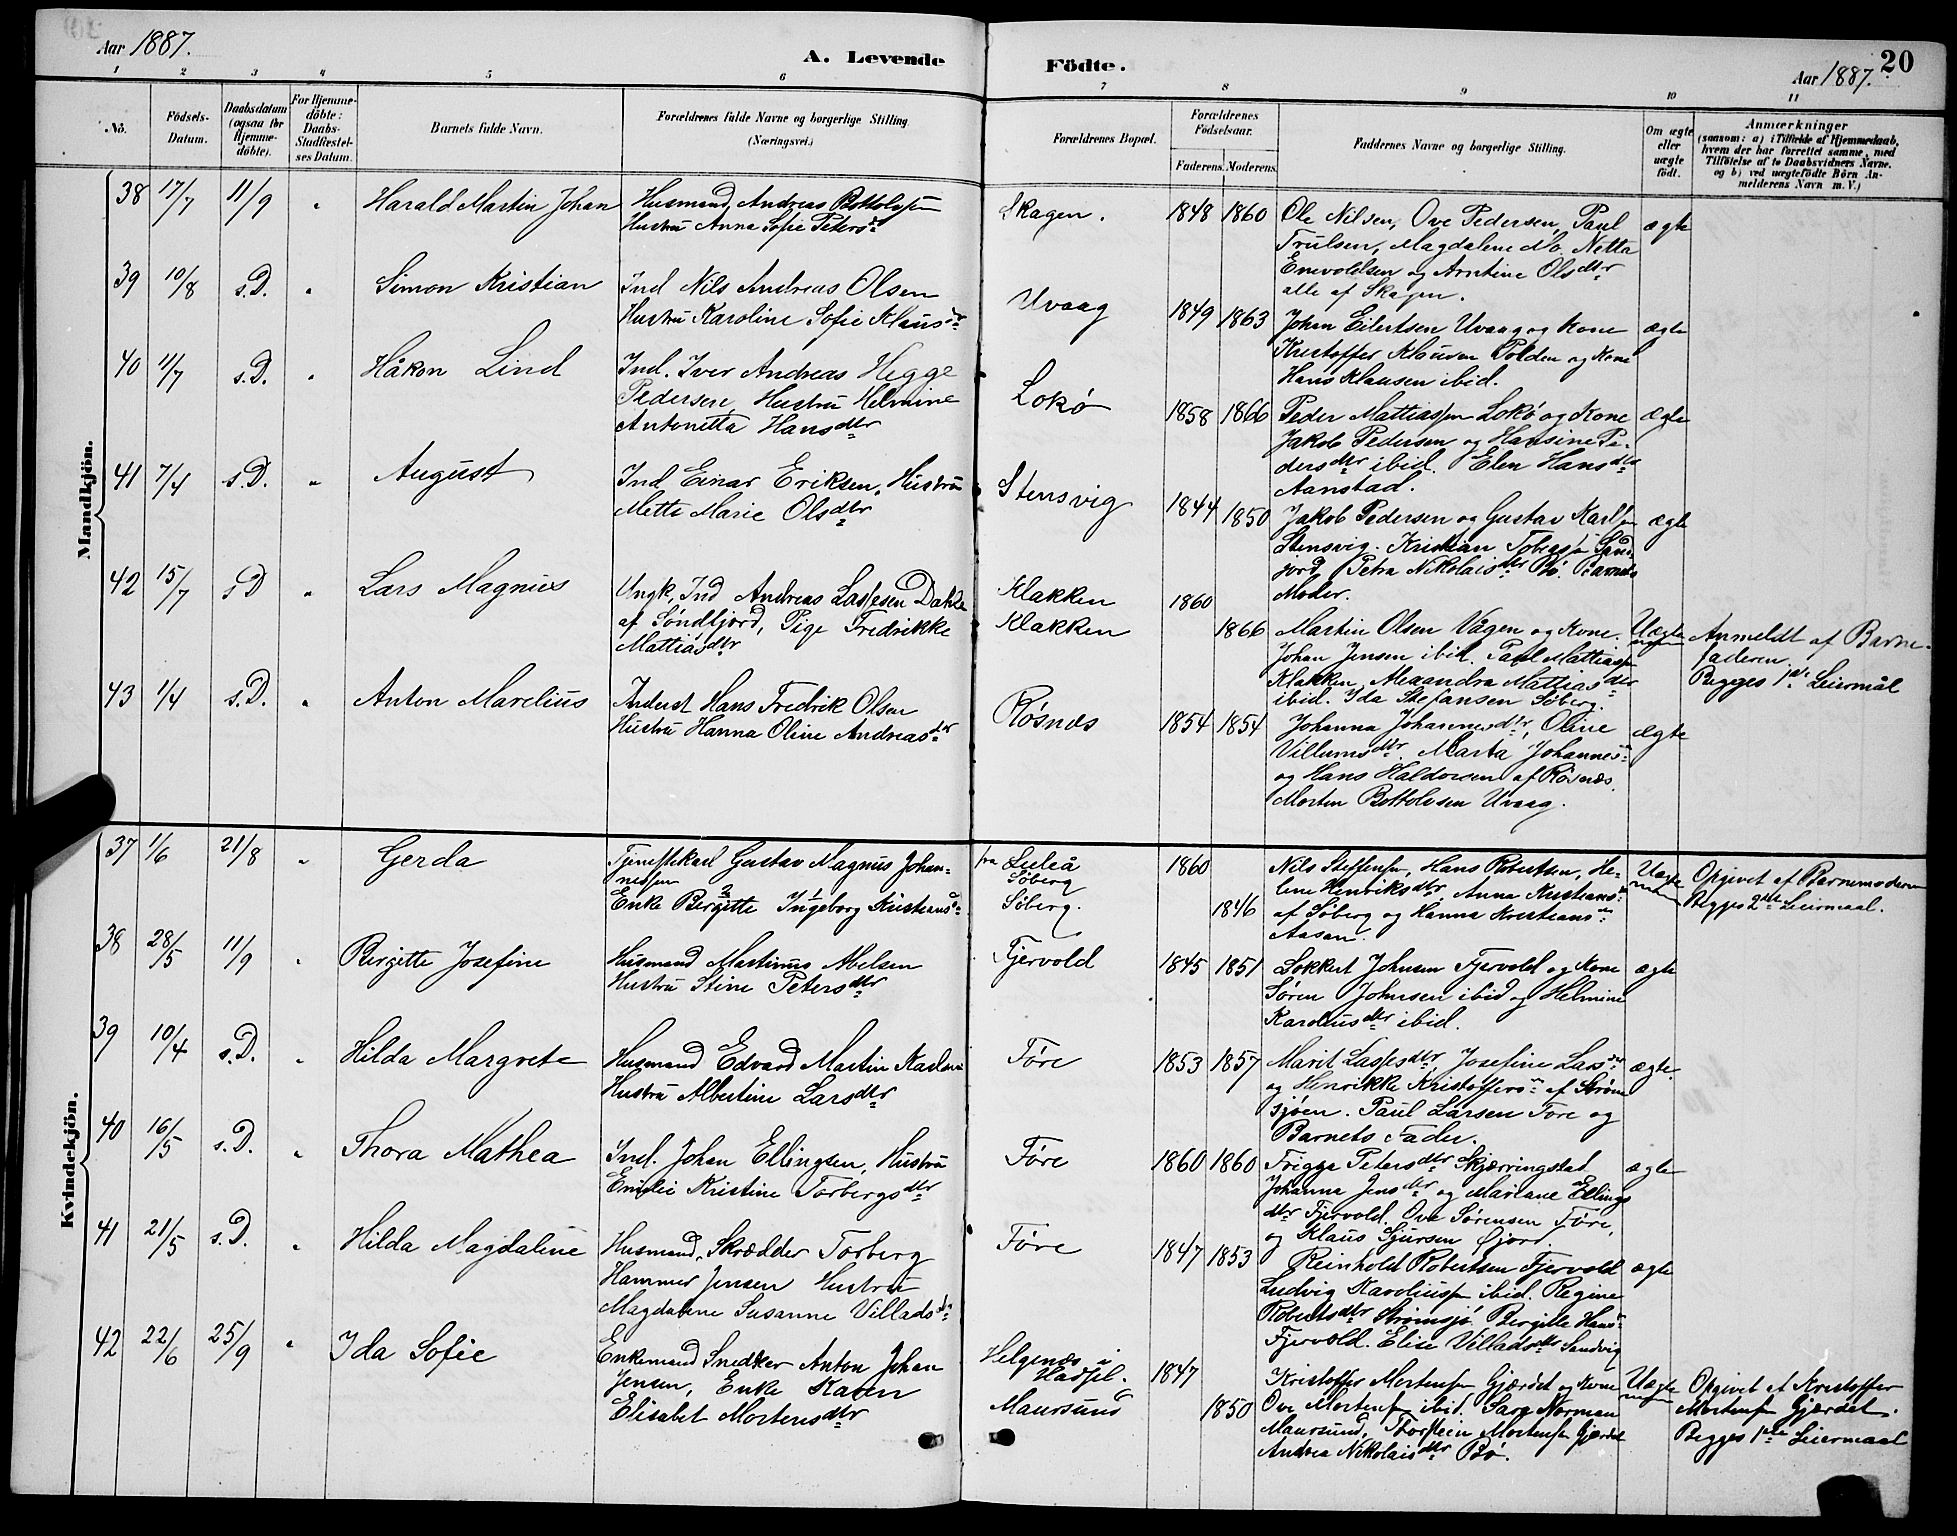 Aar 1887.
A. Levende
Födte.
Aar 1887.
20
1 2 3 4 5 6 7 8 9 10 11
No.
Födsels-Datum.
Daabsdatum (ogsaa for Hjemme-döbte).
For Hjemme-döbte: Daabs-Stadfæstel-ses Datum.
Barnets fulde Navn.
Forældrenes fulde Navne og borgerlige Stilling (Næringsvei.)
Forældrenes Bopæl.
Forældrenes Födselsaar.
Faderens. Moderens.
Faddernes Navne og borgerlige Stilling.
Om ægte eller uægte födt.
Anmærkninger
(saasom: a) i Tilfælde af Hjemmedaab, hvem der har forrettet samme, med Tilföielse af to Daabsvidners Navne. og b) ved uægtefödte Börn An-melderens Navn m.V.)
Mandkjön.
38 17/7 11/9 " Harald Martin Johan
Husmand Andreas Bottolfsen
Hustru Anna Sofie Petersdr
Skagen.
1848 1860
Ole Nilsen, Ove Pedersen, Paul
Trulsen, Magdalene Mo, Netta
Enevoldsen og Arntine Olsdtr
alle af Skagen.
ægte
39 10/8 s.D. " Simon Kristian
Ind Nils Andreas Olsen
Hustru Karoline Sofie Klausdr
Uvaag
1849 1863
Johan Eilertsen Uvaag og Kone
Kristoffer Klausen Polden og Kone
Hans Klausen ibid.
ægte
40 11/7 s.D. " Håkon Lind
Ind. Iver Andreas Hegge
Pedersen, Hustru Helmine
Antonetta Hansdtr
Lokø
1858 1866
Peder Mattiassen Lokø og Kone
Jakob Pedersen og Hansine Pe-
dersdtr ibid. Elen Hansdtr
Aanstad.
ægte
41 7/4 s.D. " August
Ind Einar Eriksen, Hustru
Mette Marie Olsdtr
Stensvig
1844 1850
Jakob Pedersen og Gustav Karlsen
Stensvig. Kristian
Petra Nikolaisdtr Bø. Barnets
Moder.
ægte
42 15/7 s D " Lars Magnus
Ungk, Ind Andreas Lassesen Dahle
af Søndfjord, Pige Fredrikke
Mattiasdtr
Klakken
Klakken
1860
1866
Martin Olsen Vågen og Kone.
Johan Jensen ibid. Paul Mattiassen
Klakken, Alexandra Mattiasdtr
ibid. Ida Stefansen Søberg.
Uægte
Anmeldt af Barne-
faderen.
Begges 1ste Leiermål
43 1/4 s.D. " Anton Marelius
Inderst Hans Fredrik Olsen
Hustru Hanna Oline Andreasdtr
Røsnæs
1854 1854
Johanna Johannesdtr, Oline
Villumsdtr, Marta Johannes"
og Hans Haldorsen af Røsnæs.
Morten Bottolvsen Uvaag.
ægte
Kvindekjön.
37 1/6 21/8 " Gerda
Tjenestekarl Gustav Magnus Johan-
nessen
Enke Birgitte 2 Ingeborg 1 Kristiansd
fra Luleå
Søberg
Søberg.
1860
1846
Nils Steffensen, Hans Robertsen, He-
lene Henriksdtr, Anna Kristians"
af Søberg og Hanna Kristiansdtr
Aasan.
Uægte
Opgivet af Barnemoderen
Begges 2det Leiermaal.
38 28/5 11/9 " Birgitte Josefine
Husmand Martinus Abelsen
Hustru Stine Petersdtr
Fjervold
1845 1851
Lokkert Johnsen Fjervold og Kone
Søren Johnsen ibid og Helmine
Karoliusdtr ibid.
ægte
39 10/4 s.D. " Hilda Margrete
Husmand Edvard Martin Karlsen
Hustru Albertine Larsdtr
Føre
1853 1857
Marit Lassesdtr, Josefine Larsdtr
og Henrikke Kristoffers" af Strøm-
sjøen. Paul Larsen Føre og
Barnets Fader.
ægte.
40 16/5 s.D. " Thora Mathea
Ind. Johan Ellingsen, Hustru
Emilie Kristine Torbergsdtr
Føre
1860 1860
Frigga Petersdtr Skjærringstad
Johanna Jensdtr og Mariane Ellings
dtr Fjervold. Ove Sørensen Føre,
og Klaus Sjursen Gjord.
ægte
41 21/5 s.D. " Hilda Magdalene
Husmand, Skrædder Torberg
Hammer Jensen Hustru
Magdalene Susanne Villadsdr
Føre
1847 1853
Reinholdt Robertsen Fjervold
Ludvig Karoliussen ibid. Regine
Robertsdtr Strømsjø. Birgitte Hans"
Fjervold. Elise Villadsdtr Sandvig
ægte
42 22/6 25/9 " Ida Sofie
Enkemand Snedker Anton Johan
Jensen, Enke Karen
Elisabet Mortensdtr
Helgenæs i
Hadsel.
Maursund
1847
1850
Kristoffer Mortensen Gjærdet og Kone
Ove Mortensen ibid. Sara Norman
Maursund, Thorstein Mortensen Gjærdet
Andrea Nikolaisdtr Bø.
Uægte
Opgivet af Kristoffer
Mortensen Gjærdet.
Begges 1ste Leiermaal